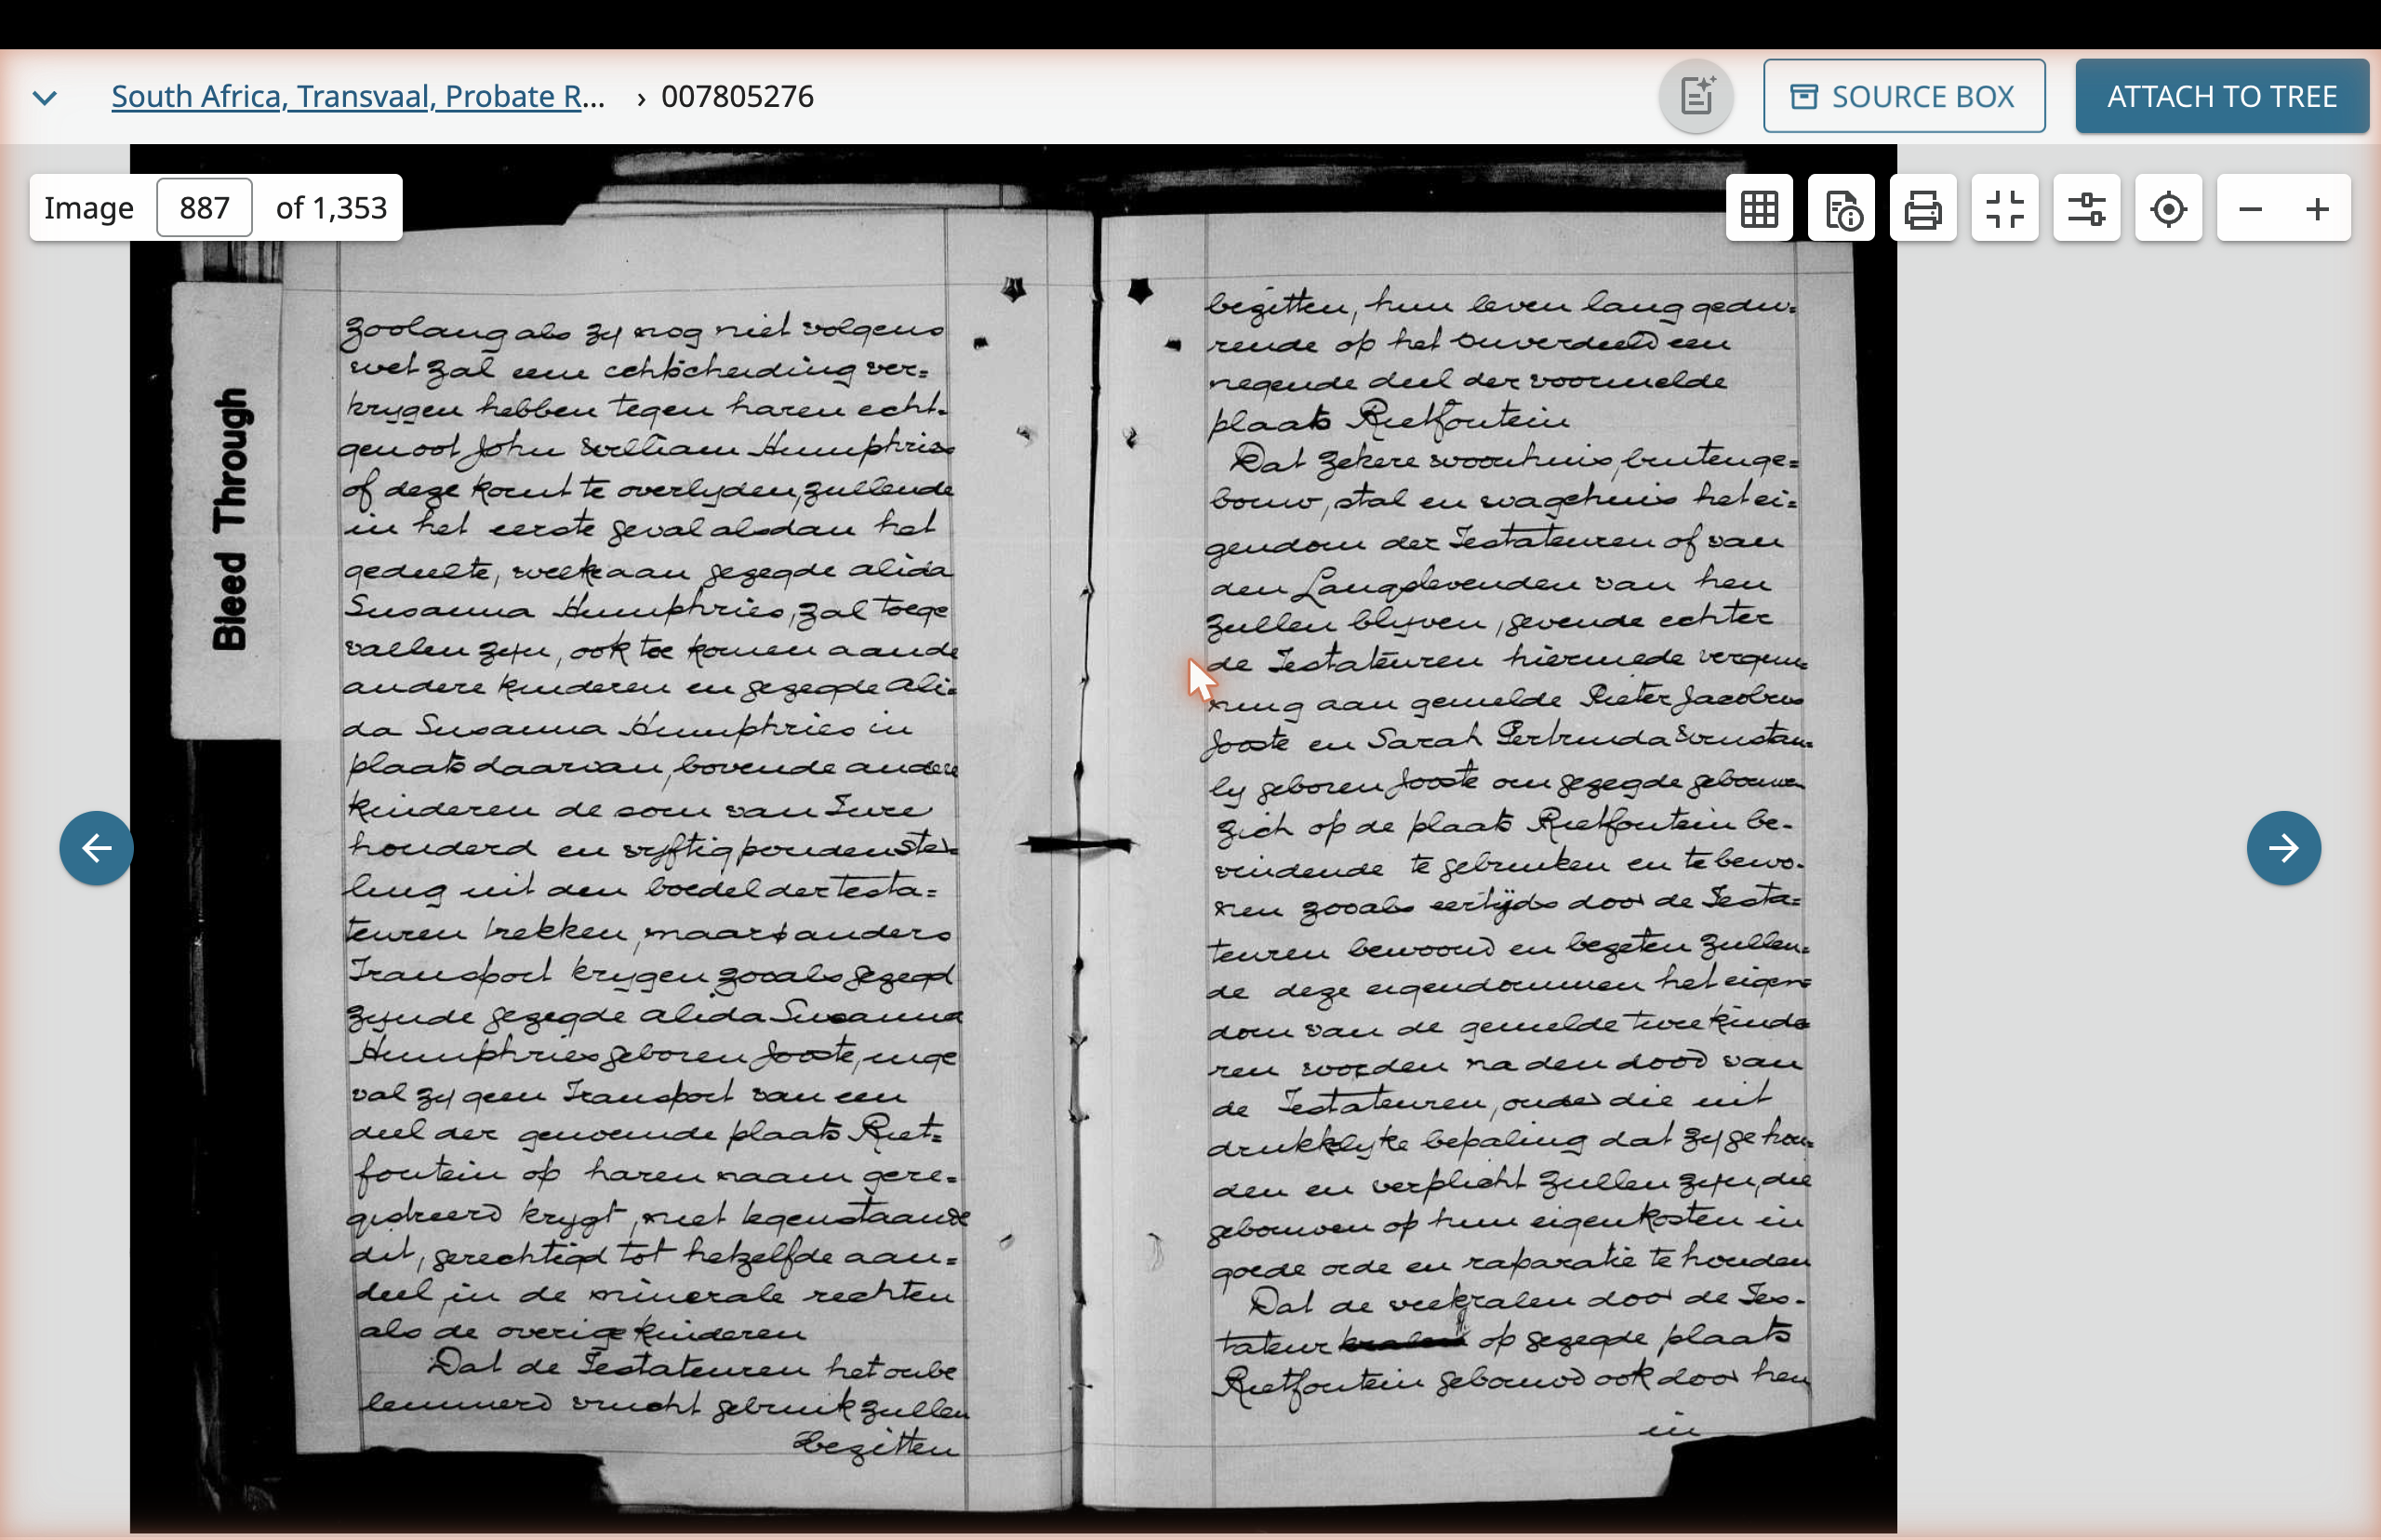 South Africa, Transvaal, Probate R... › 007805276
SOURCE BOX
ATTACH TO TREE
Image 887 of 1,353
Bleed Through
zoolang als zy nog niet volgens
wet zal eene echtscheiding ver=
krygen hebben tegen haren echt-
genoot John William Humphries
of deze komt te overlyden, zullende
in het eerste geval alsdan het
gedeelte, welk aan gezegde Alida
Susanna Humphries, zal toege
vallen zyn, ook toe komen aan de
andere kinderen en gezegde Ali=
da Susanna Humphries in
plaats daarvan, boven de andere
kinderen de som van Twee
honderd en vyftig ponden Ster=
ling uit den boedel der testa=
teuren trekken, maar anders
Transport krygen zooals gezegd
zynde gezegde Alida Susanna
Humphries geboren Jooste, inge
val zy geen Transport van een
deel der genoemde plaats Riet=
fontein op haren naam gere=
gistreerd krygt, niet tegenstaande
dit, gerechtigd tot hetzelfde aan=
deel in de minerale rechten
als de overige kinderen
Dat de Testateuren het onbe
lemmerd vrucht gebruik zullen
bezitten
bezitten, hun leven lang gedu=
rende op het onverdeeld een
negende deel der voormelde
plaats Rietfontein
Dat zekere woonhuis, buitenge=
bouw, stal en wagehuis het ei=
gendom der Testateuren of van
den Langslevenden van hen
zullen blyven, gevende echter
de Testateuren hiermede vergun=
ning aan gemelde Pieter Jacobus
Jooste en Sarah Gertruida Wenstan=
ly geboren Jooste om gezegde gebouwen
zich op de plaats Rietfontein be-
vindende te gebruiken en te bewo-
nen zooals eertijds door de Testa=
teuren bewoond en bezeten zullen=
de deze eigendommen het eigen=
dom van de gemelde twee kinde
ren worden na den dood van
de Testateuren, onder die uit
drukklyke bepaling dat zy gehou=
den en verplicht zullen zyn, die
gebouwen op hun eigen kosten in
goede orde en raparatie te houden
Dat de veekralen door de Tes-
tateur op gezegde plaats
Rietfontein gebouwd ook door hen
in